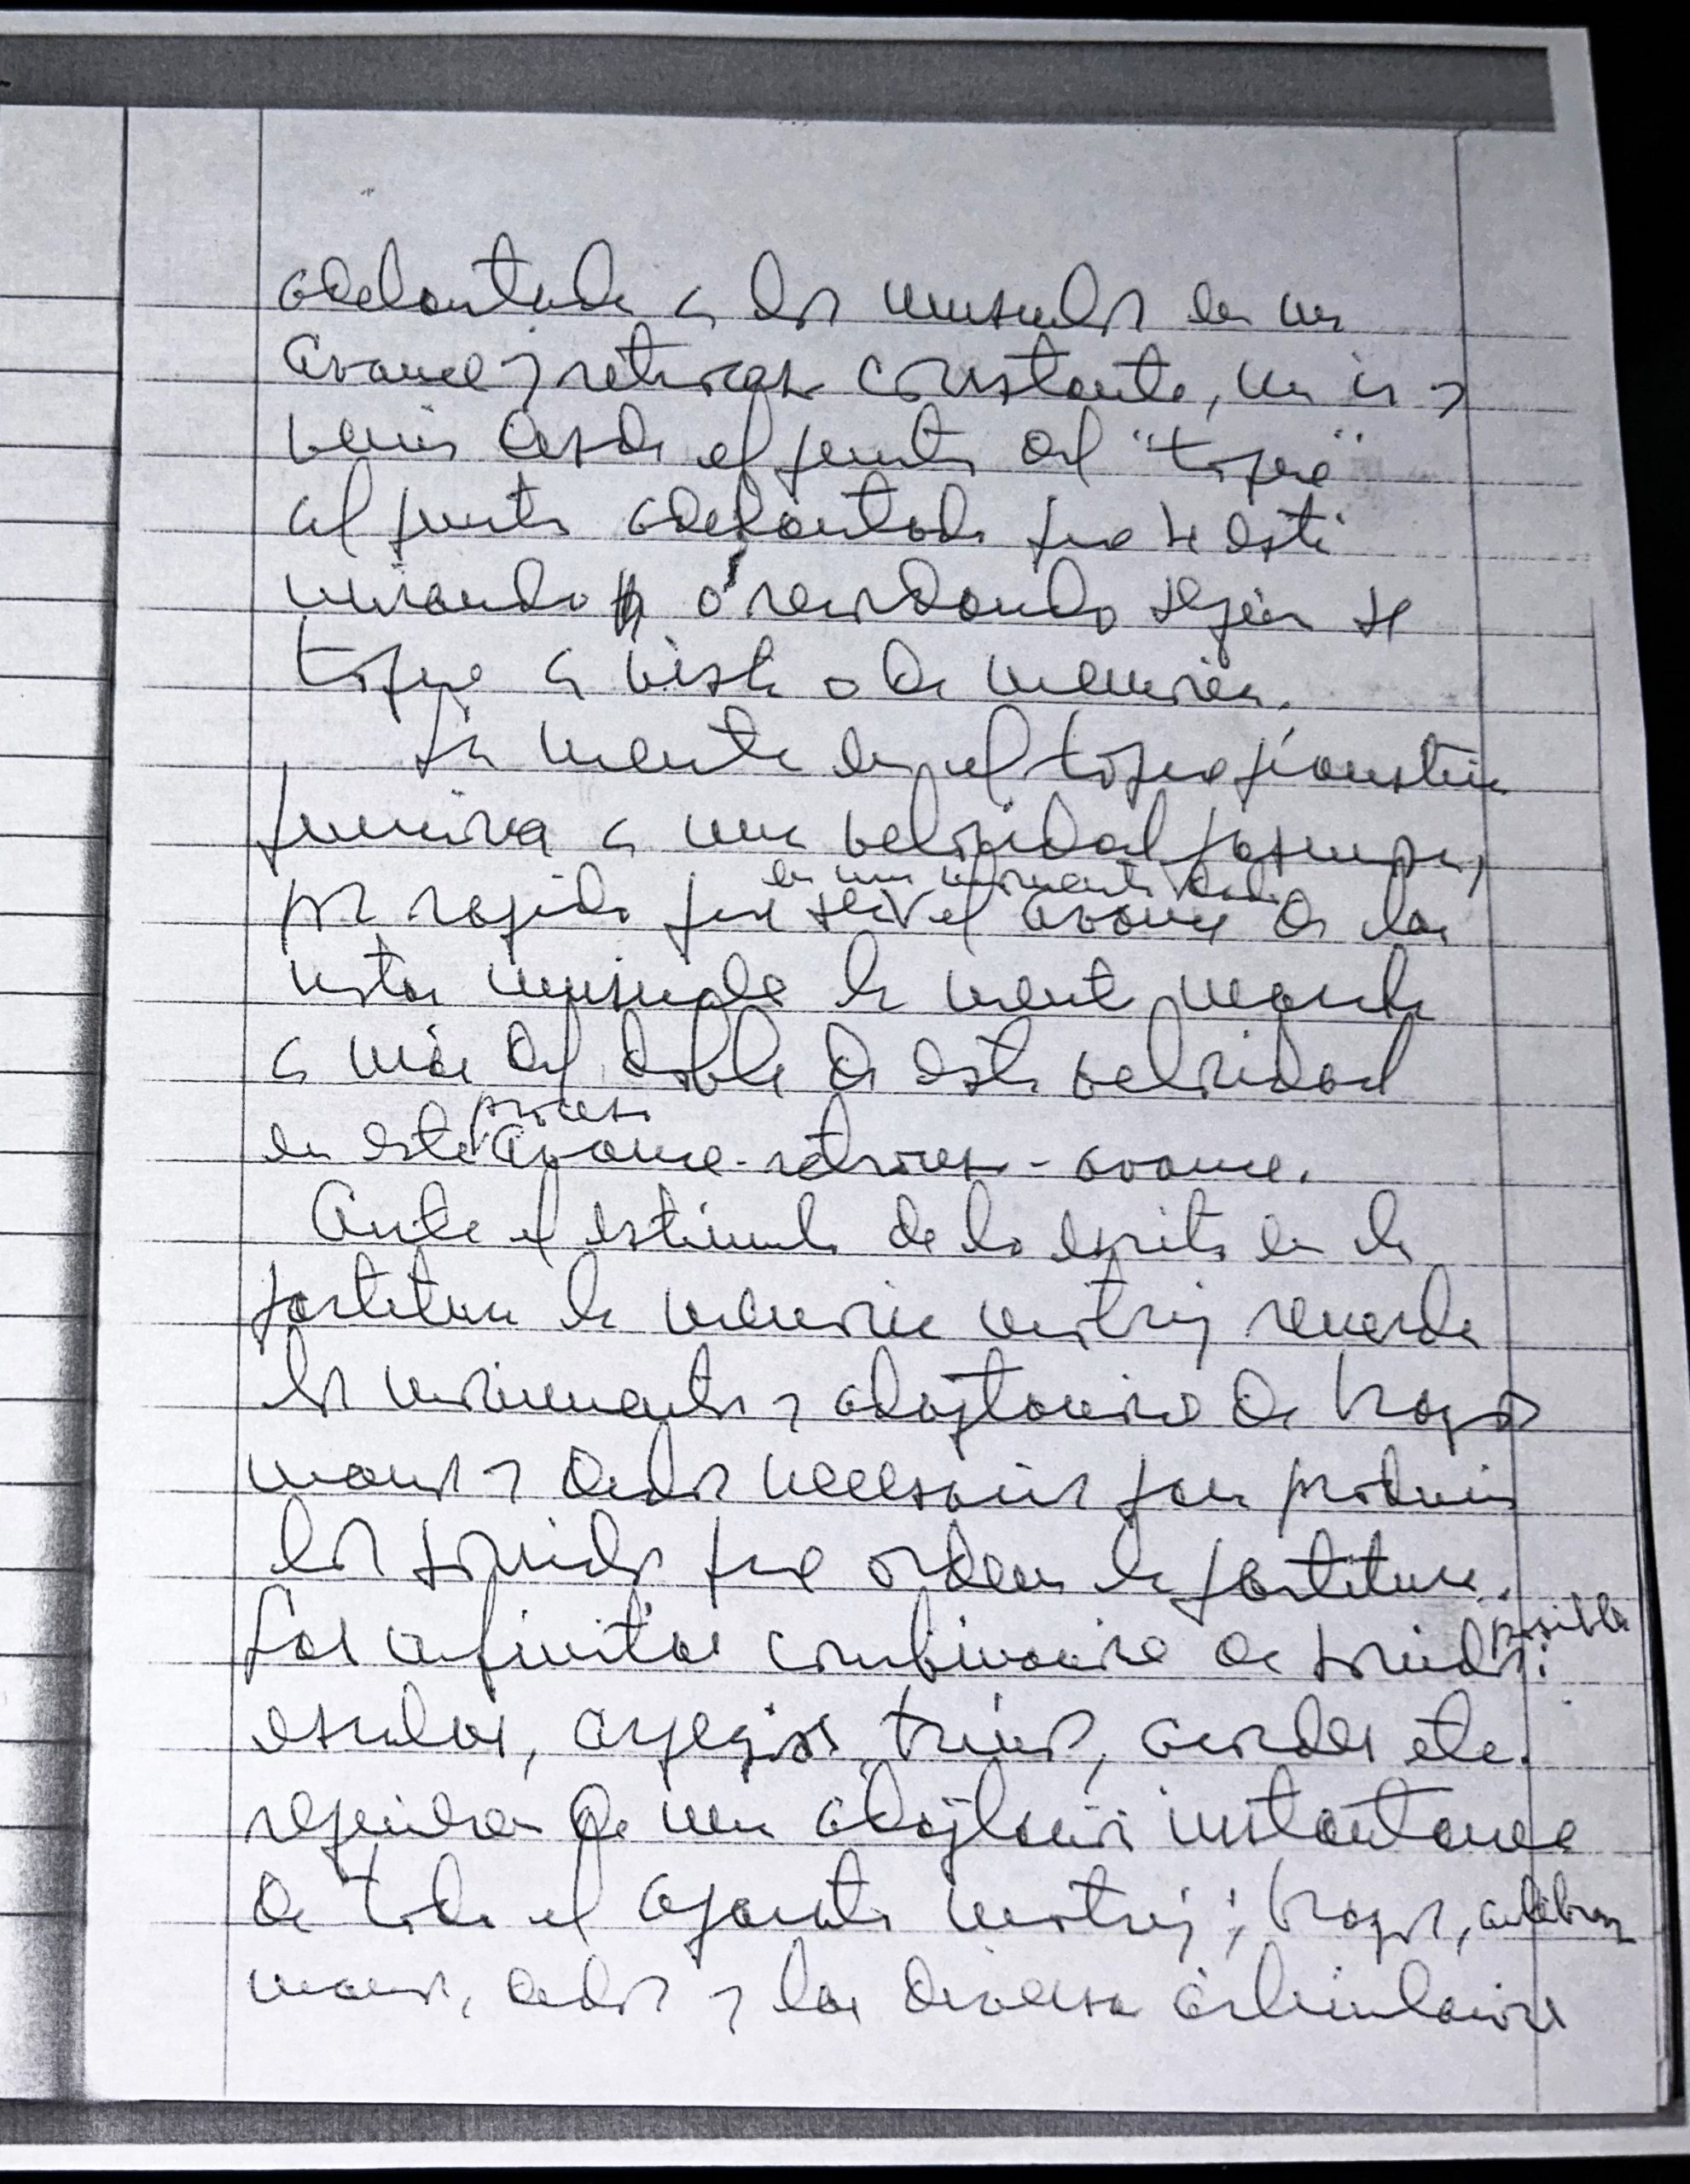 adelantada a los musculos en un
avance y retroceso constante, un ir y
venir desde el punto del "toque"
al punto adelantado que se está
mirando o recordando según se
toque a vista o de memoria.
La mente en el toque pianístico
funciona a una velocidad pasmosa,
por rapido que sea en un momento dado el avance de las
notas musicales la mente manda
a más del doble de esta velocidad
en este proceso avance-retroceso-avance.
Ante el estimulo de lo escrito en la
partitura la memoria motriz recuerda
los movimientos y adaptaciones de brazos
manos y dedos necesarios para producir
los sonidos que ordena la partitura.
Las infinitas combinaciones de sonidos posibles:
escalas, arpegios, trinos, acordes etc.
requieren de una adaptación instantanea
de todo el aparato motriz; brazos, antebrazos
manos, dedos y las diversas articulaciones